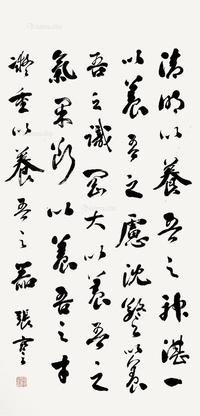 清明以養吾之神湛一
以養吾之慮沈警以養
吾之識剛大以養吾之
氣果斷以養吾之才
凝重以養吾之器 張